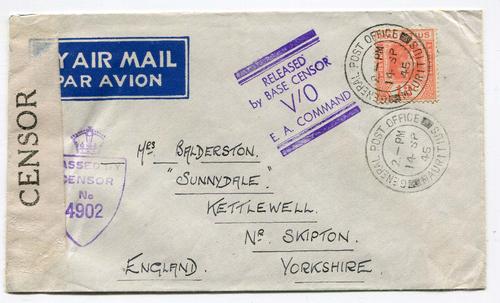 CENSOR
Y AIR MAIL
PAR AVION
RELEASED
by BASE CENSOR
V/O
E. A. COMMAND
GENERAL POST OFFICE
MAURITIUS
2 - PM
14 SP
45
GENERAL POST OFFICE
MAURITIUS
2 - PM
14 SP
45
ASSED BY
CENSOR
No
4902
Mrs BALDERSTON.
"SUNNYDALE."
KETTLEWELL.
Nr. SKIPTON.
ENGLAND. YORKSHIRE.